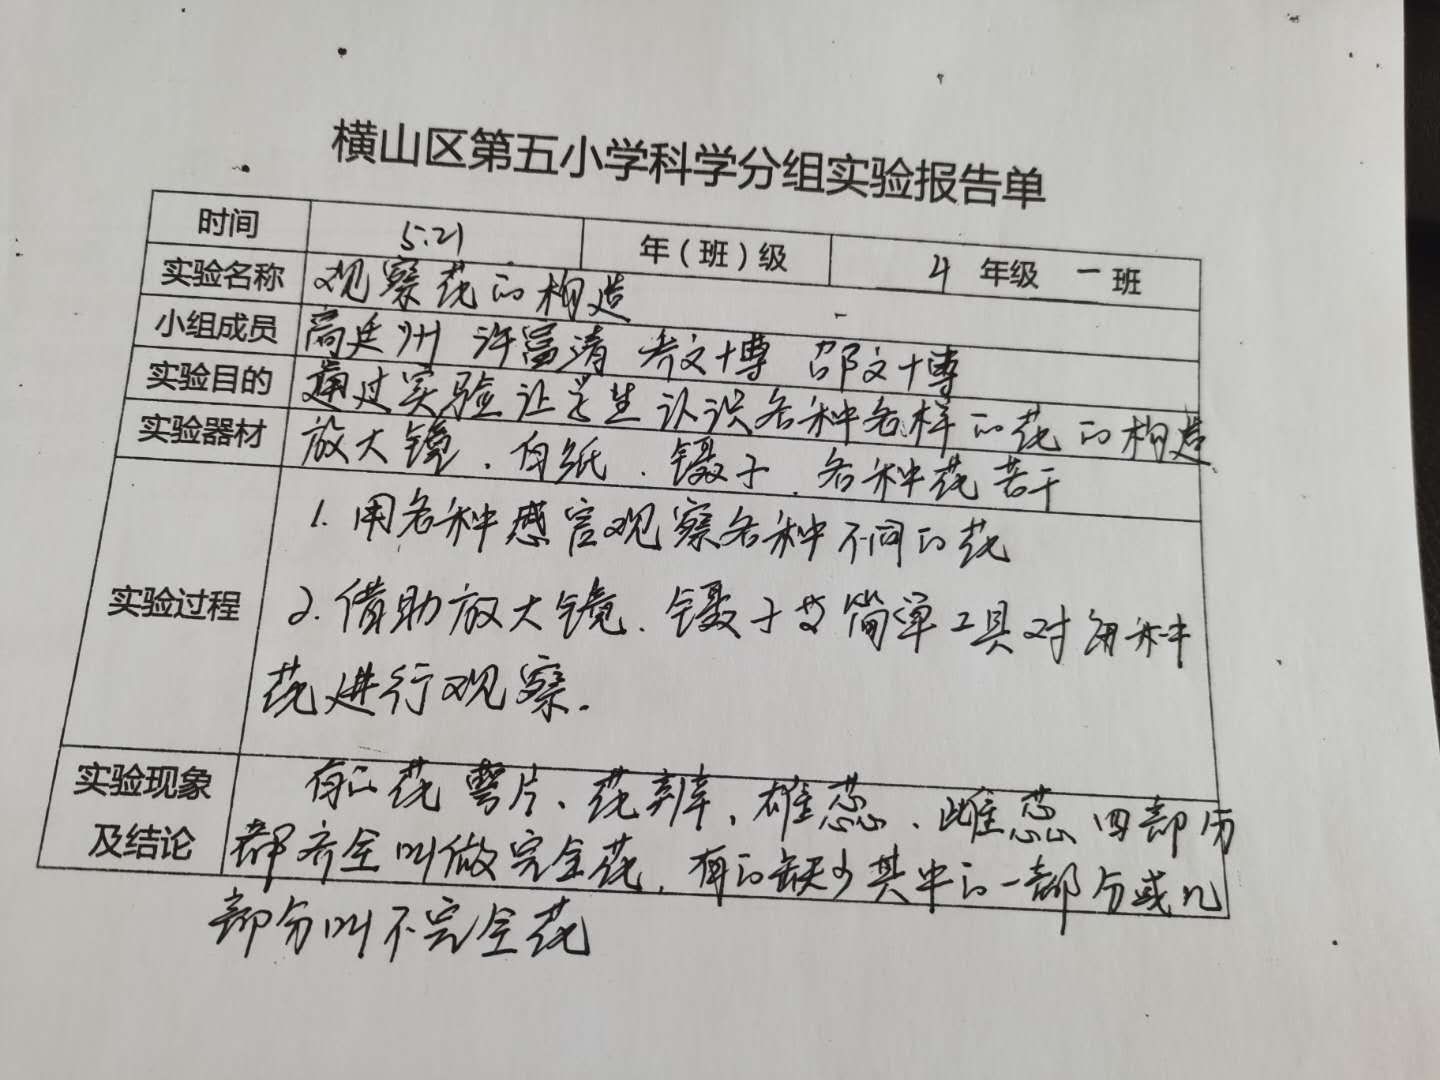 横山区第五小学科学分组实验报告单
时间 5.21 年(班)级 4 年级 一 班
实验名称 观察花的构造
小组成员 高廷州 许富清 文博 邵文博
实验目的 通过实验让学生认识各种各样的花的构造
实验器材 放大镜、白纸、镊子、各种花若干
实验过程
1. 用各种感官观察各种不同的花
2. 借助放大镜、镊子等简单工具对每种
花进行观察.
实验现象及结论
有的花萼片、花辨、雄蕊、雌蕊四部分
都齐全叫做完全花,有的缺少其中的一部分或几
部分叫不完全花